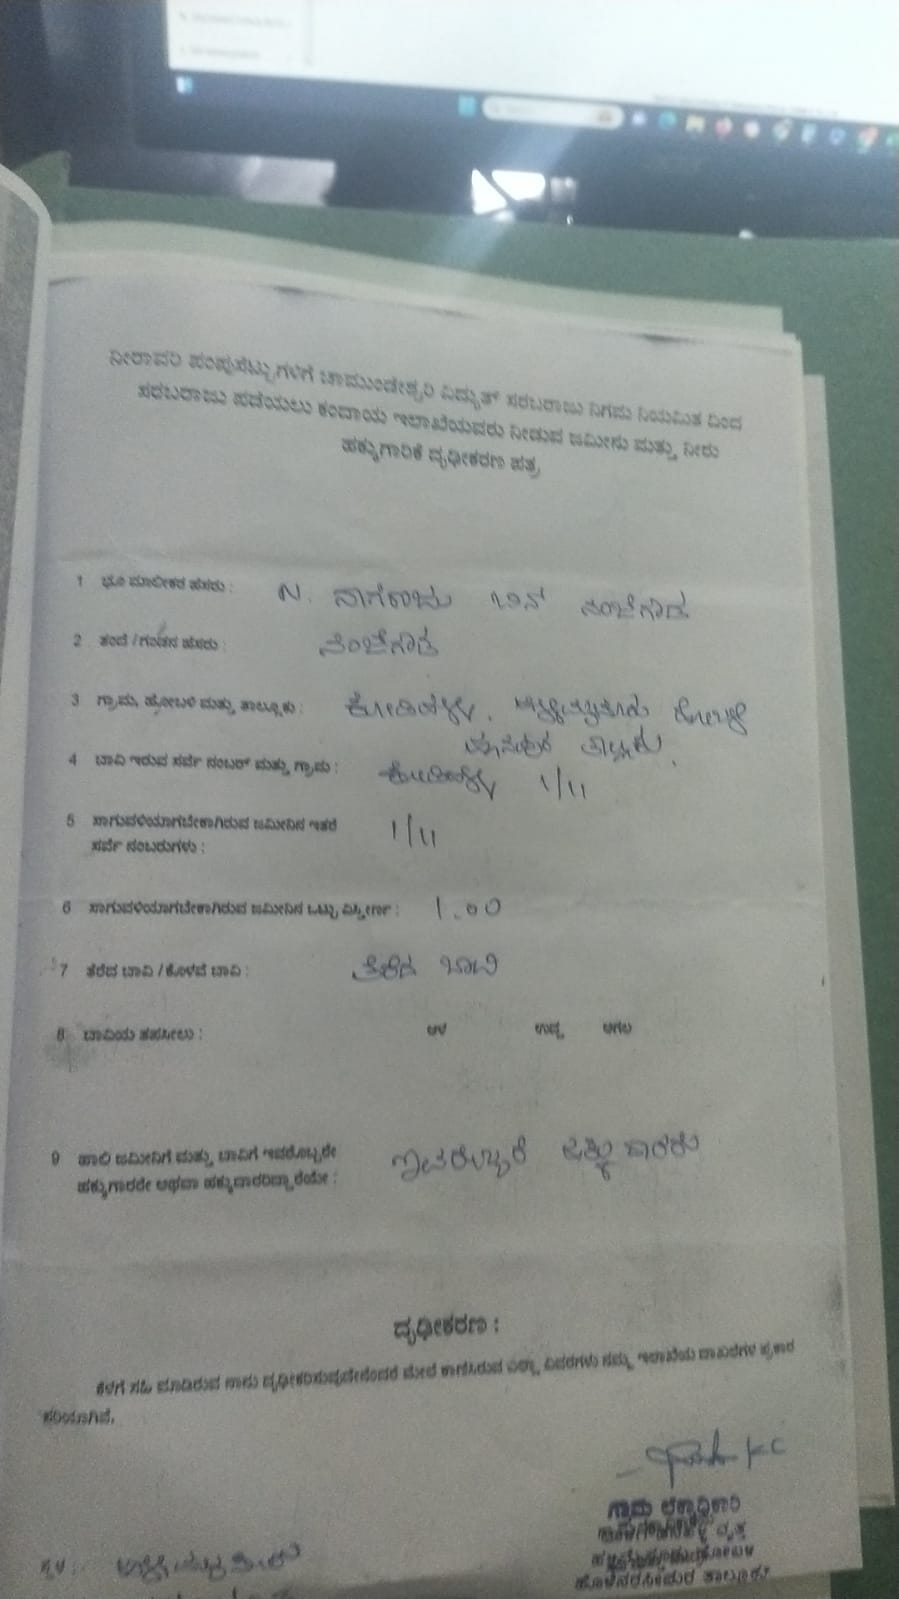 ನೀರಾವರಿ ಪಂಪುಸೆಟ್ಟುಗಳಿಗೆ ಚಾಮುಂಡೇಶ್ವರಿ ವಿದ್ಯುತ್ ಸರಬರಾಜು ನಿಗಮ ನಿಯಮಿತ ದಿಂದ
ಸರಬರಾಜು ಪಡೆಯಲು ಕಂದಾಯ ಇಲಾಖೆಯವರು ನೀಡುವ ಜಮೀನು ಮತ್ತು ನೀರು
ಹಕ್ಕುಗಾರಿಕೆ ದೃಢೀಕರಣ ಪತ್ರ
1 ಭೂ ಮಾಲೀಕರ ಹೆಸರು : N. ನಾಗರಾಜು ಬಿನ್ ನಂಜೇಗೌಡ
2 ತಂದೆ / ಗಂಡನ ಹೆಸರು : ನಂಜೇಗೌಡ
3 ಗ್ರಾಮ, ಹೋಬಳಿ ಮತ್ತು ತಾಲ್ಲೂಕು : ಕೋಡಿಹಳ್ಳಿ, ಹೋಬಳಿ
ತಾಲ್ಲೂಕು.
4 ಬಾವಿ ಇರುವ ಸರ್ವೆ ನಂಬರ್ ಮತ್ತು ಗ್ರಾಮ : ಕೋಡಿಹಳ್ಳಿ 1/11
5 ಸಾಗುವಳಿಯಾಗಬೇಕಾಗಿರುವ ಜಮೀನಿನ ಇತರೆ 1/11
ಸರ್ವೆ ನಂಬರುಗಳು :
6 ಸಾಗುವಳಿಯಾಗಬೇಕಾಗಿರುವ ಜಮೀನಿನ ಒಟ್ಟು ವಿಸ್ತೀರ್ಣ : 1.00
7 ತೆರೆದ ಬಾವಿ / ಕೊಳವೆ ಬಾವಿ : ತೆರೆದ ಬಾವಿ
8 ಬಾವಿಯ ತಪಸೀಲು : ಆಳ ಉದ್ದ ಅಗಲ
9 ಹಾಲಿ ಜಮೀನಿಗೆ ಮತ್ತು ಬಾವಿಗೆ ಇವರೊಬ್ಬರೇ ಇವರೊಬ್ಬರೆ ಹಕ್ಕುದಾರರು
ಹಕ್ಕುಗಾರರೇ ಅಥವಾ ಹಕ್ಕುದಾರರಿದ್ದಾರೆಯೇ :
ದೃಢೀಕರಣ :
ಕೆಳಗೆ ಸಹಿ ಮಾಡಿರುವ ನಾನು ದೃಢೀಕರಿಸುವುದೇನೆಂದರೆ ಮೇಲೆ ಕಾಣಿಸಿರುವ ಎಲ್ಲಾ ವಿವರಗಳು ನಮ್ಮ ಇಲಾಖೆಯ ದಾಖಲೆಗಳ ಪ್ರಕಾರ
ಸರಿಯಾಗಿವೆ.
ಗ್ರಾಮ ಲೆಕ್ಕಾಧಿಕಾರಿ
ವೃತ್ತ
ಹೊಳೆನರಸೀಪುರ ತಾಲ್ಲೂಕು
ಸ್ಥಳ :